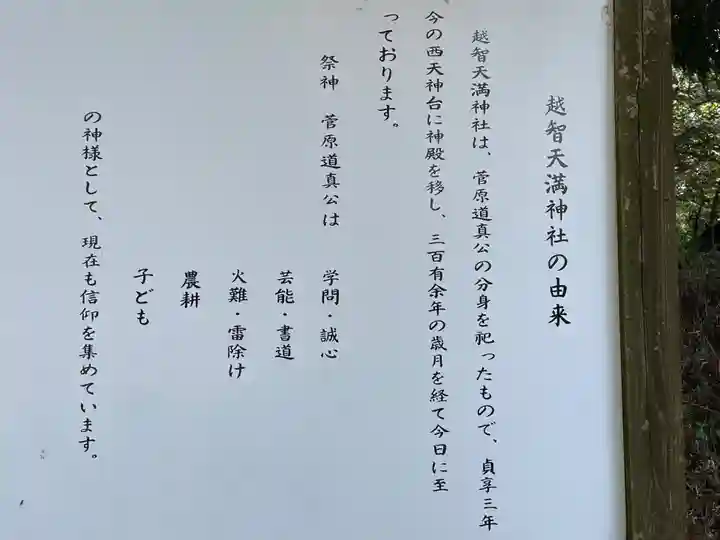 越智天満神社の由来
越智天満神社は、菅原道真公の分身を祀ったもので、貞享三年
今の西天神台に神殿を移し、三百有余年の歳月を経て今日に至
っております。
祭神 菅原道真公は 学問・誠心
芸能・書道
火難・雷除け
農耕
子ども
の神様として、現在も信仰を集めています。